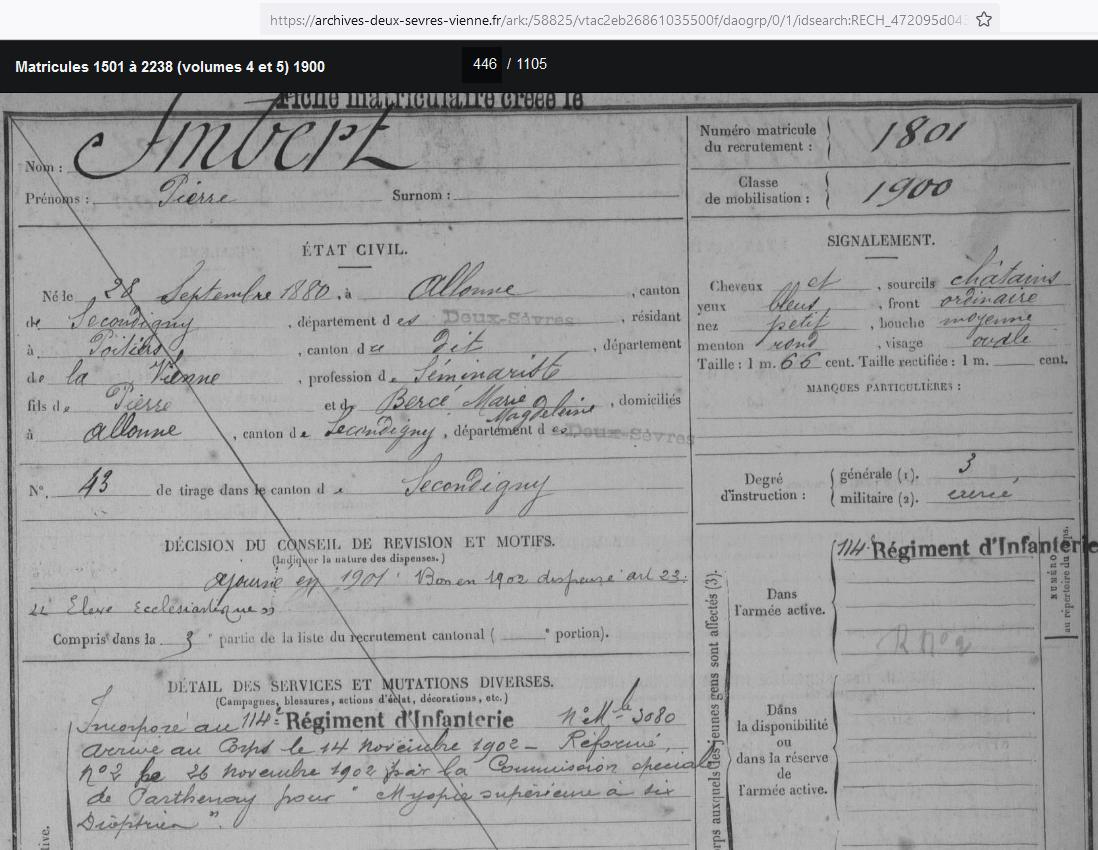 https://archives-deux-sevres-vienne.fr/ark:/58825/vtac2eb26861035500f/daogrp/0/1/idsearch:RECH_472095d043
Matricules 1501 à 2238 (volumes 4 et 5) 1900
446 / 1105
Fiche matriculaire créée le
Nom : Imbert
Prénoms : Pierre Surnom :
Numéro matricule du recrutement : 1801
Classe de mobilisation : 1900
ÉTAT CIVIL.
Né le 28 Septembre 1880, à Allonne, canton
de Secondigny, département des Deux-Sèvres, résidant
à Poitiers, canton de dit, département
de la Vienne, profession de Séminariste
fils de Pierre et de Bercé Marie Magdeleine, domiciliés
à Allonne, canton de Secondigny, département des Deux-Sèvres
N° 43 de tirage dans le canton de Secondigny
SIGNALEMENT.
Cheveux et, sourcils châtains
yeux bleus, front ordinaire
nez petit, bouche moyenne
menton rond, visage ovale
Taille : 1 m. 66 cent. Taille rectifiée : 1 m. cent.
MARQUES PARTICULIÈRES :
Degré d'instruction :
générale (1). 3
militaire (2). exercé
DÉCISION DU CONSEIL DE REVISION ET MOTIFS.
(Indiquer la nature des dispenses.)
Ajourné en 1901. Bon en 1902 dispensé art 23.
"Elève Ecclésiastique"
Compris dans la 3e partie de la liste du recrutement cantonal ( e portion).
DÉTAIL DES SERVICES ET MUTATIONS DIVERSES.
(Campagnes, blessures, actions d'éclat, décorations, etc.)
Incorporé au 114e Régiment d'Infanterie N° Mle 3080
arrivé au Corps le 14 novembre 1902 – Réformé
n° 2 le 26 novembre 1902 par la Commission spéciale
de Parthenay pour "Myopie supérieure à six
Dioptries".
ive.
orps auxquels les jeunes gens sont affectés (3).
Dans l'armée active.
114e Régiment d'Infanterie
R N° 2
Dans
la disponibilité
ou
dans la réserve
de
l'armée active.
NUMÉRO
au répertoire du corps.